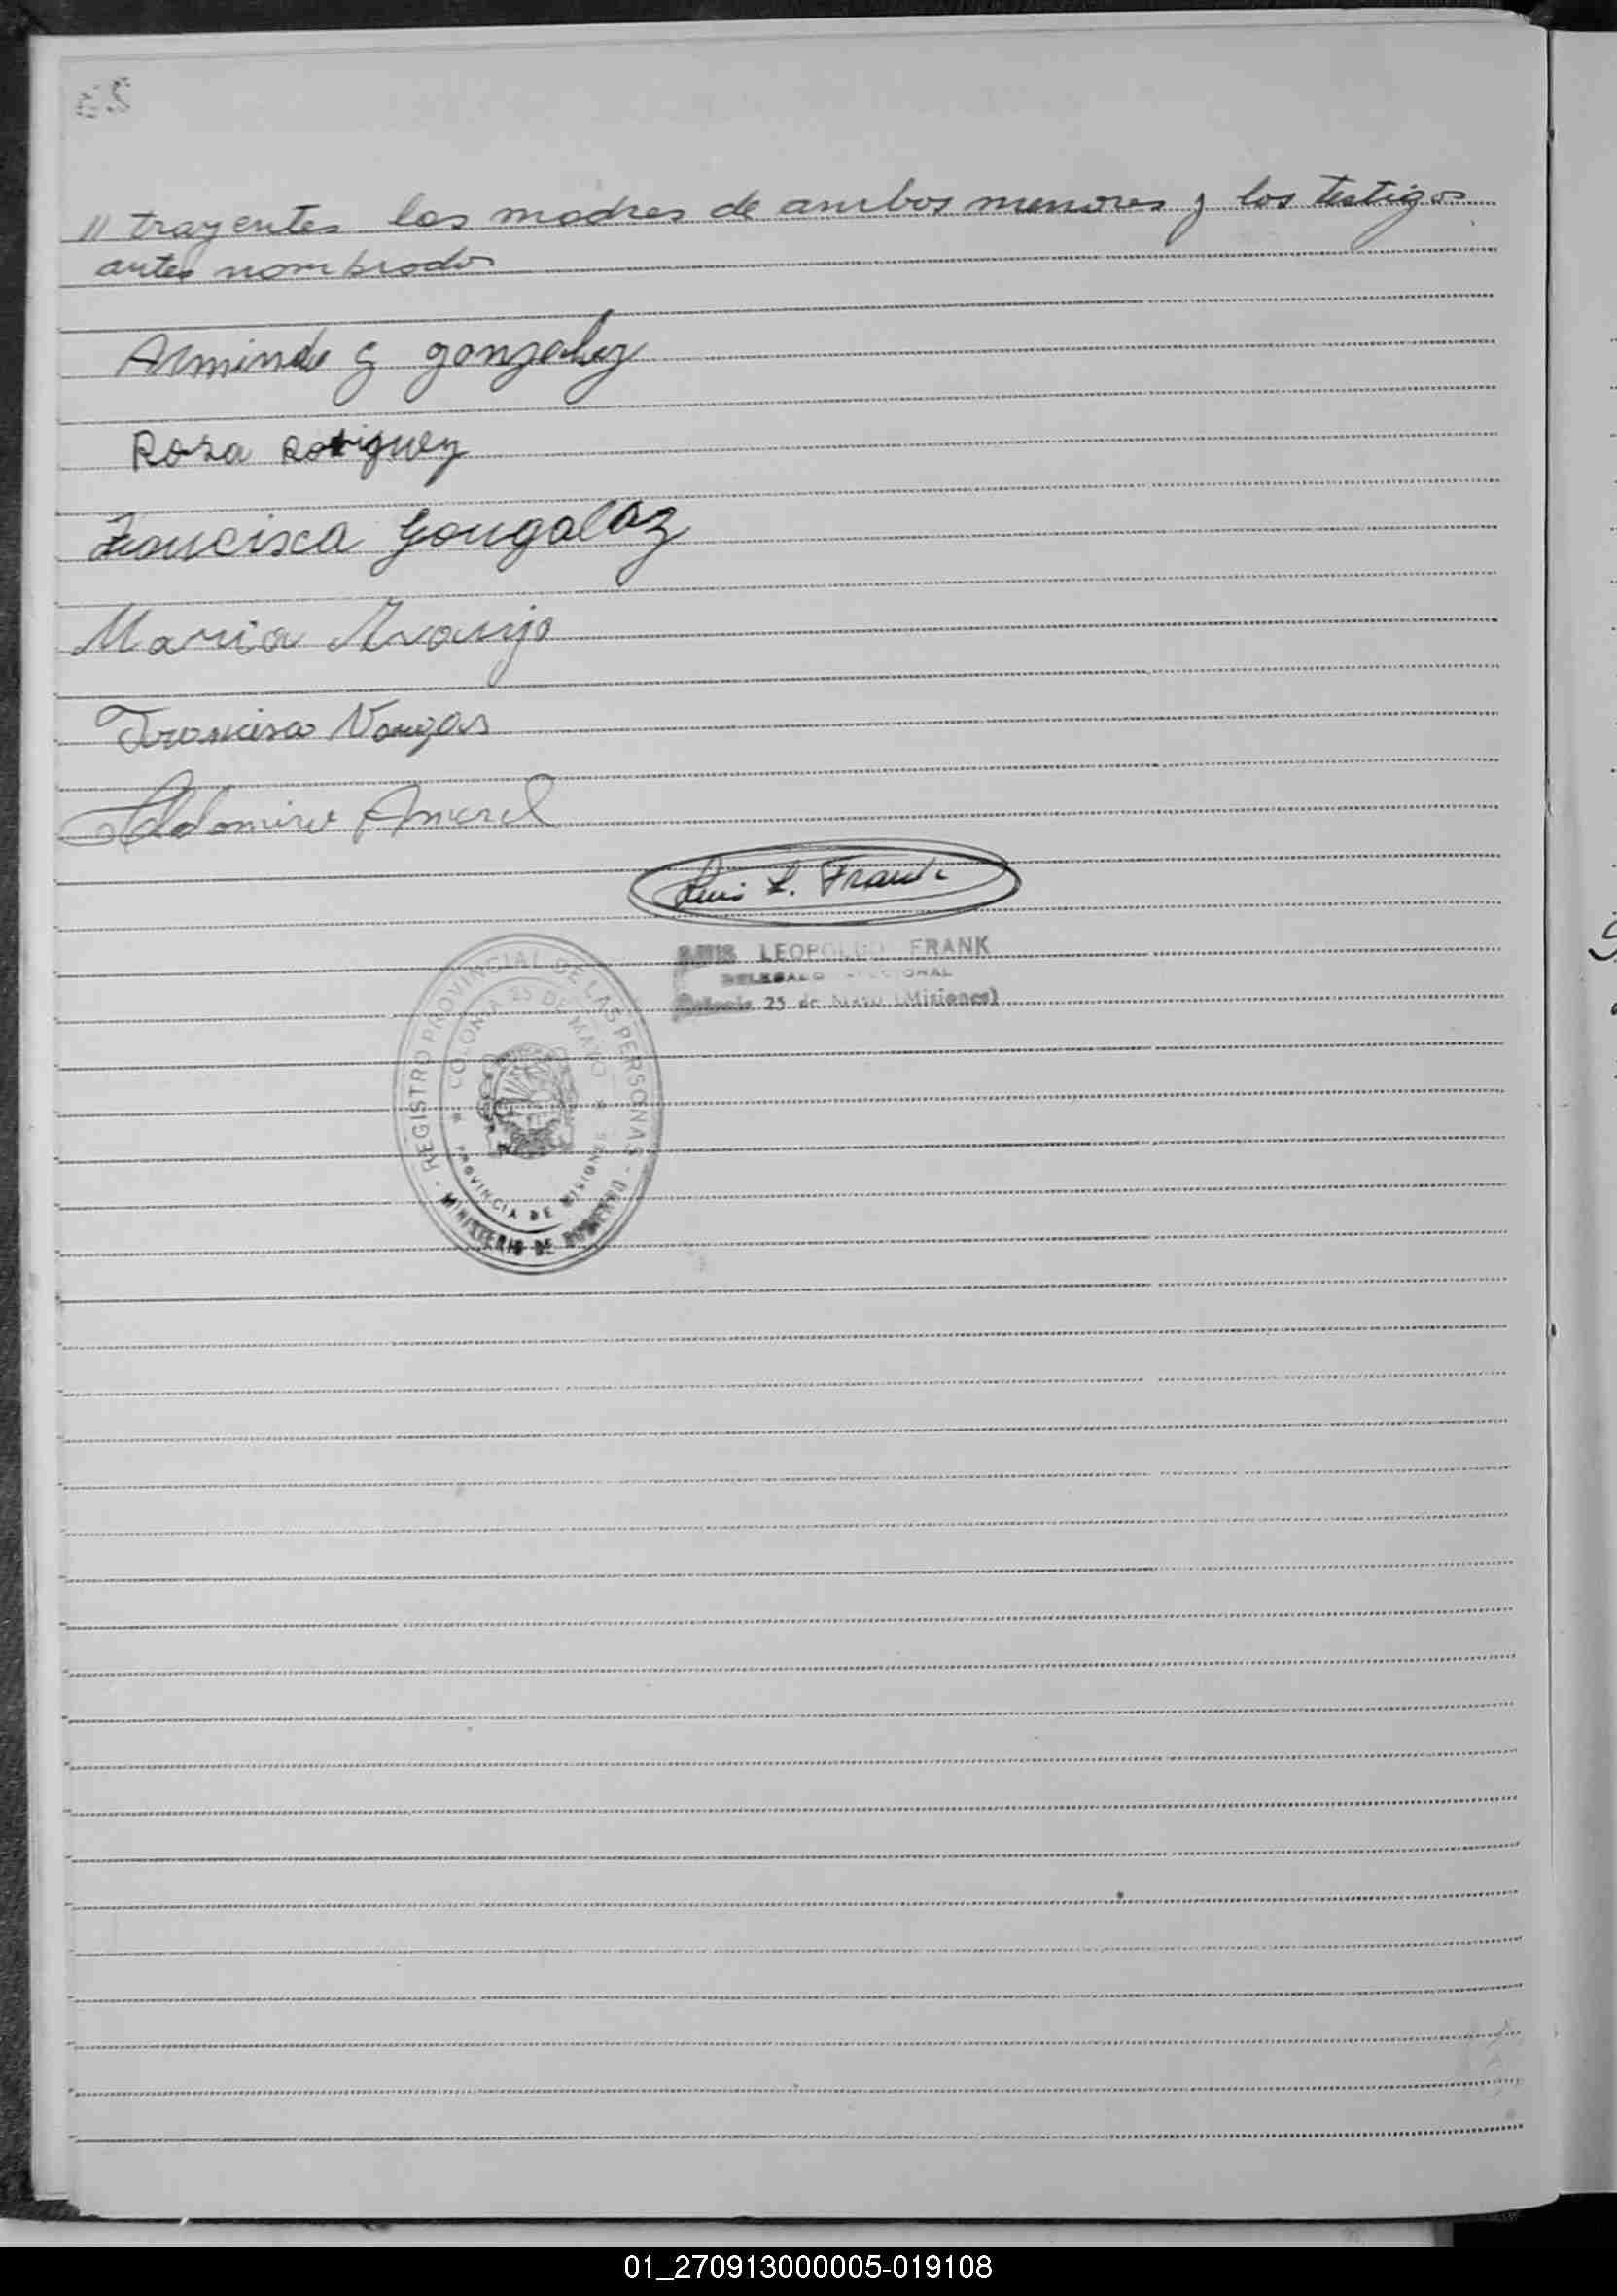 // trayentes las madres de ambos menores y los testigos
antes nombrados
Armindo G gonzalez
Rosa Rodriguez
Francisca Gongalaz
Maria Araujo
Francisco Vargas
Aldomiro Amaral
Luis L. Frank
LUIS LEOPOLDO FRANK
DELEGADO
Colonia 25 de Mayo (Misiones)
REGISTRO PROVINCIAL DE LAS PERSONAS - MINISTERIO DE GOBIERNO -
* COLONIA 25 DE MAYO *
PROVINCIA DE MISIONES
01_270913000005-019108